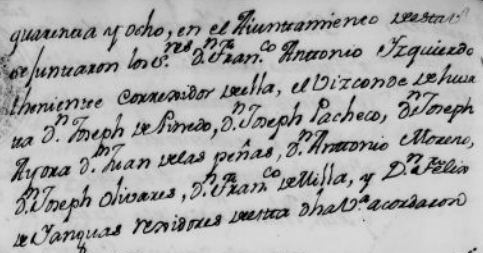 quarenta y ocho, en el Aiuntamiento de esta V.ª
se juntaron los S.res D.n Fran.co Anttonio Izquierdo
theniente correxidor de ella, el Vizconde de hue
ua D.n Joseph de Pinedo, D.n Joseph Pacheco, D.n Joseph
Ayora D.n Juan de las peñas, D.n Anttonio Moreno,
D.n Joseph Olivares, D.n Fran.co de Milla, y D.n Felix
de Yanguas rexidores de esta dha V.ª acordaron